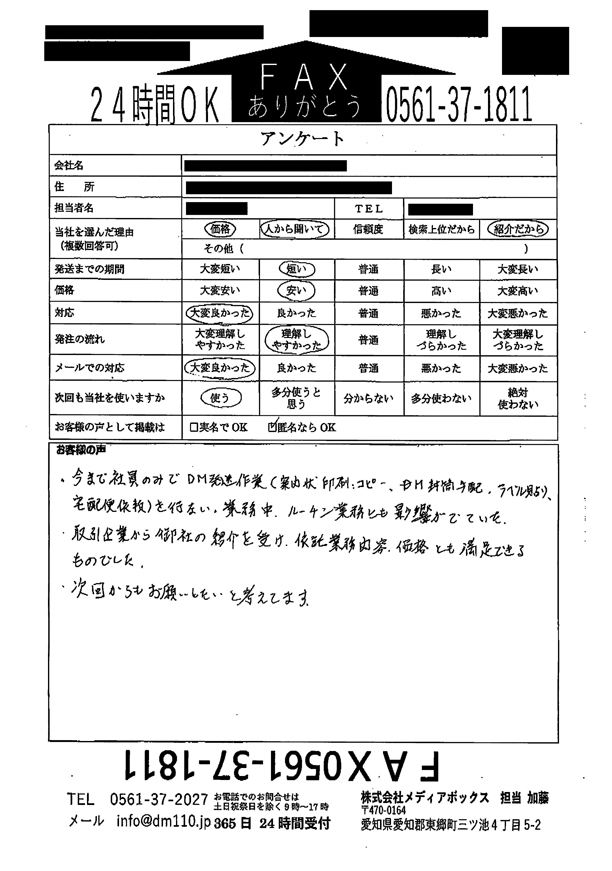 FAX
ありがとう
24時間OK
0561-37-1811
アンケート
会社名
住　所
担当者名 TEL
当社を選んだ理由 価格 人から聞いて 信頼度 検索上位だから 紹介だから
（複数回答可） その他（ ）
発送までの期間 大変短い 短い 普通 長い 大変長い
価格 大変安い 安い 普通 高い 大変高い
対応 大変良かった 良かった 普通 悪かった 大変悪かった
発注の流れ 大変理解しやすかった 理解しやすかった 普通 理解しづらかった 大変理解しづらかった
メールでの対応 大変良かった 良かった 普通 悪かった 大変悪かった
次回も当社を使いますか 使う 多分使うと思う 分からない 多分使わない 絶対使わない
お客様の声として掲載は □実名でOK ☑匿名ならOK
お客様の声
・今まで社員のみでDM発送作業（案内状印刷：コピー、DM封筒手配、ラベル貼り、
宅配便依頼）を行ない、業務中、ルーチン業務にも影響がでていた。
・取引企業から御社の紹介を受け、依託業務内容、価格とも満足できる
ものでした。
・次回からもお願いしたいと考えてます。
FAX0561-37-1811
TEL　0561-37-2027 お電話でのお問合せは
土日祝祭日を除く9時～17時
メール　info@dm110.jp 365日 24時間受付
株式会社メディアボックス　担当 加藤
〒470-0164
愛知県愛知郡東郷町三ツ池4丁目5-2